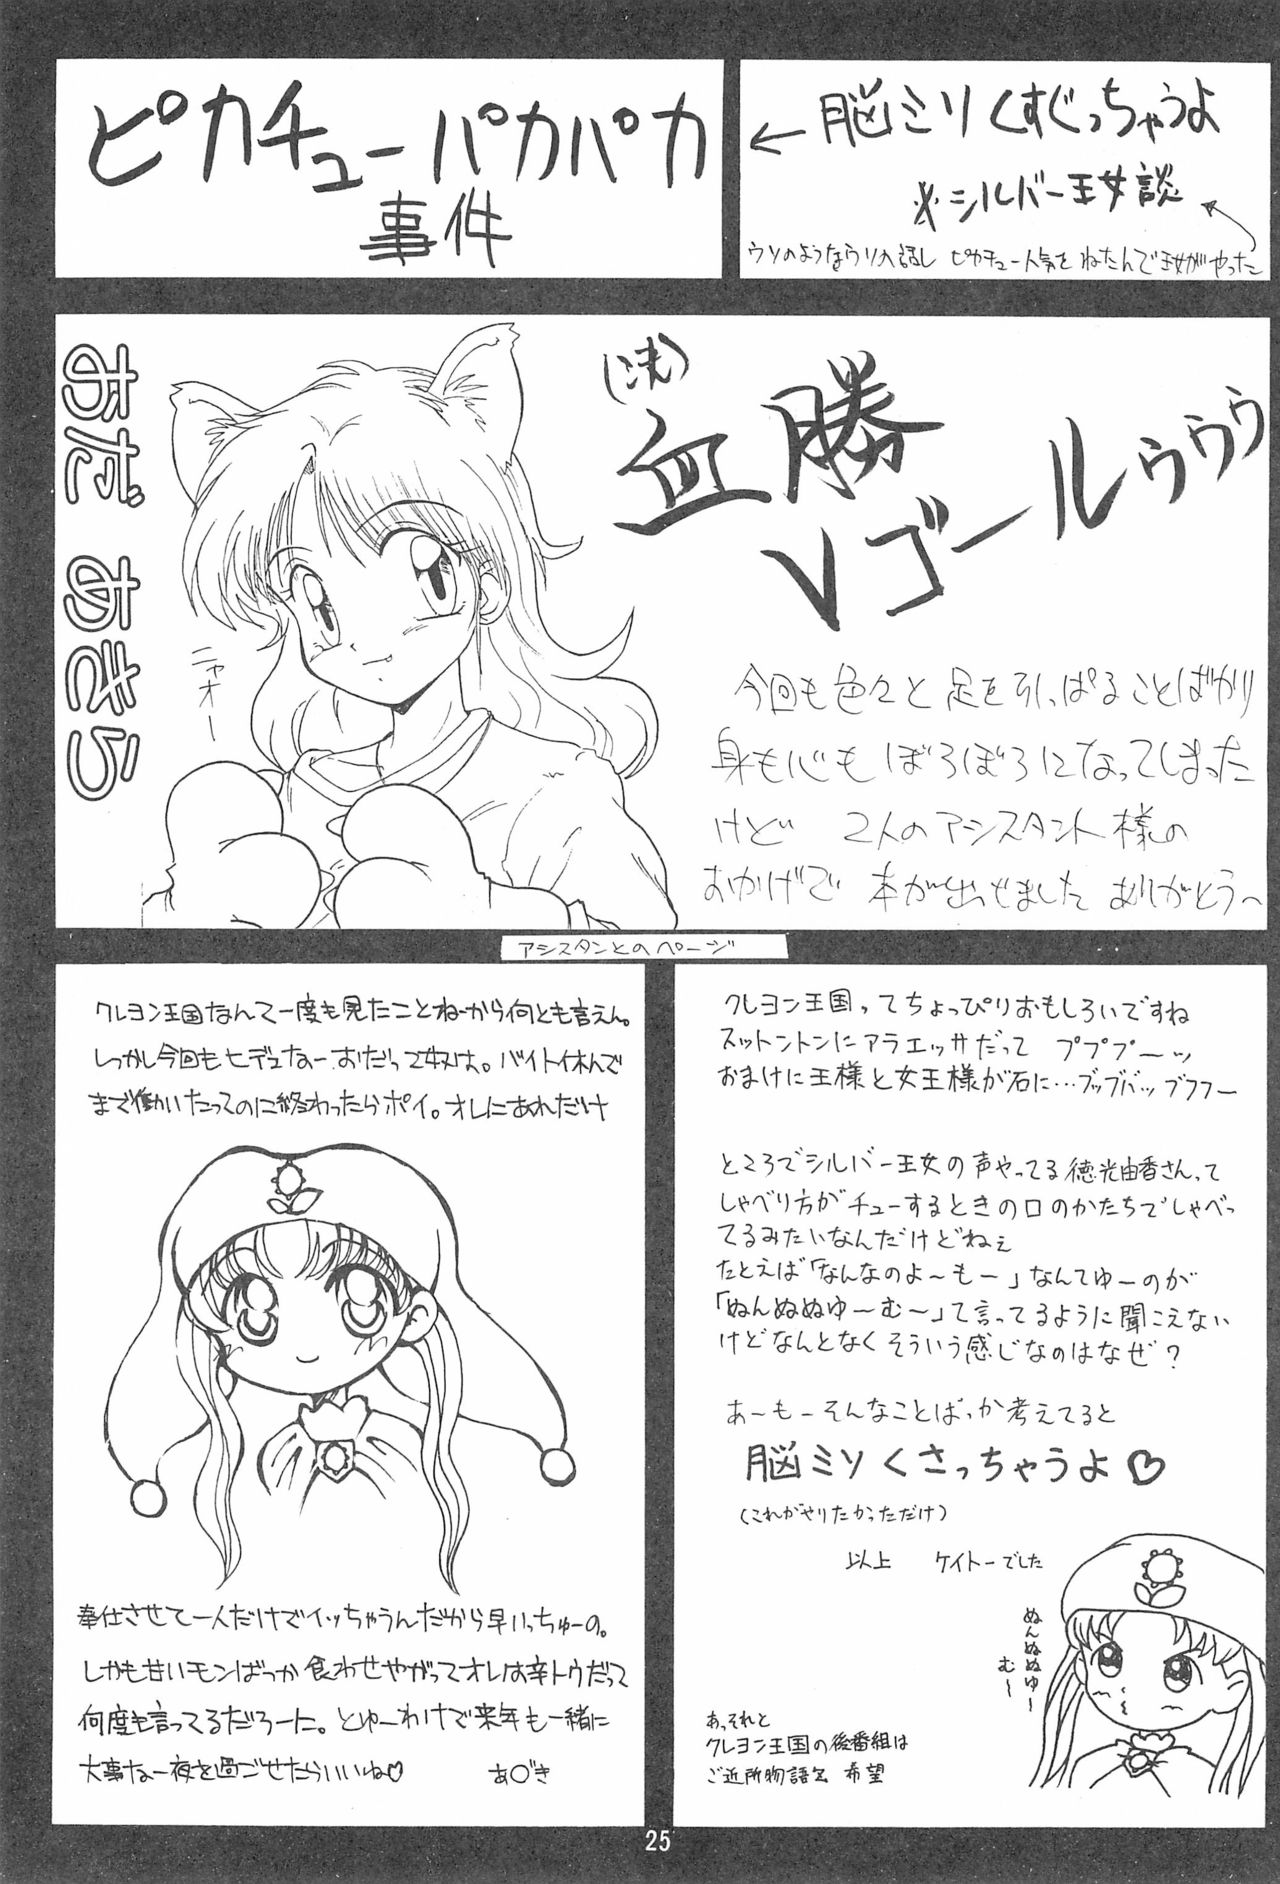 ピカチューパカパカ
事件
← 脳ミソくすぐっちゃうよ
※シルバー王女談
ウソのようなウソの話し ピカチュー人気をねたんで王女がやった
おだ あきら
ニャオー
血勝
Vゴールゥゥゥ
今回も色々と足を引っぱることばかり
身も心もぼろぼろになってしまった
けど 2人のアシスタント様の
おかげで 本が出せました ありがとう〜
アシスタンとのページ
クレヨン王国なんて一度も見たことねーから何とも言えん。
しっかし今回もヒデェなーおだって奴は。バイト休んで
まで働いたってのに終わったらポイ。オレにあれだけ
奉仕させて一人だけでイッちゃうんだから早いっちゅーの。
しかも甘いモンばっか食わせやがってオレは辛トウだって
何度も言ってるだろーに。とゆーわけで来年も一緒に
大事な一夜を過ごせたらいいね♡ あ○き
クレヨン王国ってちょっぴりおもしろいですね
スットントンにアラエッサだって プププーッ
おまけに王様と女王様が石に…ブッブバッブフフー
ところでシルバー王女の声やってる徳光由香さんって
しゃべり方がチューするときの口のかたちでしゃべっ
てるみたいなんだけどねぇ
たとえば「なんなのよ〜もー」なんてゆーのが
「ぬんぬぬゆ〜む〜」て言ってるように聞こえない
けどなんとなくそういう感じなのはなぜ?
あーもーそんなことばっか考えてると
脳ミソくさっちゃうよ♡
(これがやりたかっただけ)
以上 ケイトーでした
ぬんぬぬゆ〜
む〜
あっそれと
クレヨン王国の後番組は
ご近所物語を 希望
25